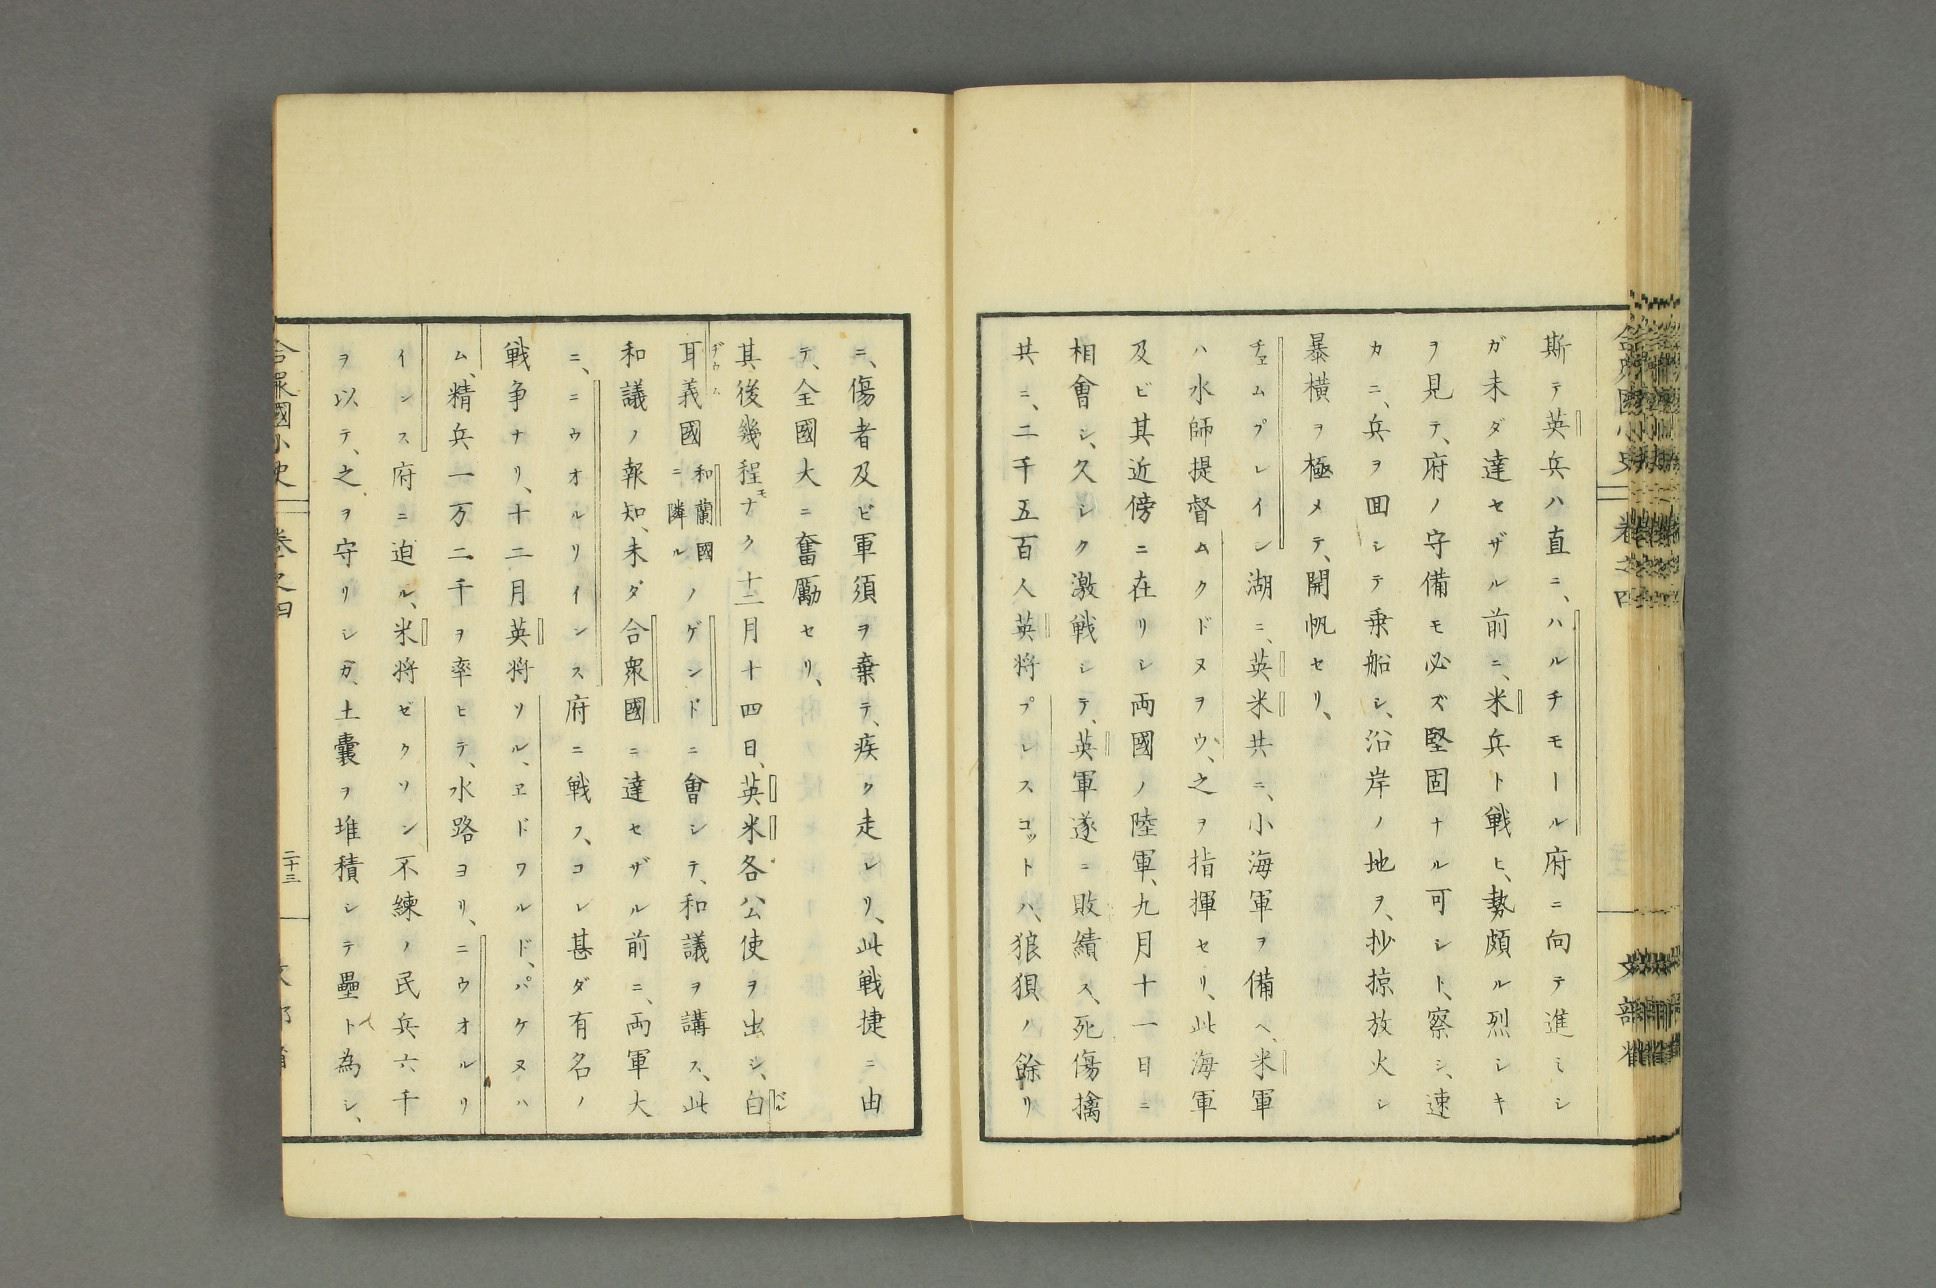 斯テ英兵ハ直ニ、ハルチモール府ニ向テ進ミシ
ガ未ダ達セザル前ニ、米兵ト戦ヒ、勢頗ル烈シキ
ヲ見テ、府ノ守備モ必ズ堅固ナル可シト、察シ、速
カニ、兵ヲ囬シテ乗船シ、沿岸ノ地ヲ、抄掠放火シ
暴横ヲ極メテ、開帆セリ、
チェムプレイン湖ニ、英米共ニ、小海軍ヲ備ヘ、米軍
ハ水師提督ムクドヌヲウ、之ヲ指揮セリ、此海軍
及ビ其近傍ニ在リシ両國ノ陸軍、九月十一日ニ
相會シ、久シク激戦シテ、英軍遂ニ敗績ス、死傷擒
共ニ、二千五百人英将プレスコットハ、狼狽ノ餘リ
ニ、傷者及ビ軍須ヲ棄テ、疾ク走レリ、此戦捷ニ由
テ、全國大ニ奮励セリ、
其後幾程モナク十二月十四日、英米各公使ヲ出シ、白
耳義國和蘭國ニ隣ルノゲンドニ會シテ、和議ヲ講ス、此
和議ノ報知、未ダ合衆國ニ達セザル前ニ、両軍大
ニ、ニウオルリインス府ニ戦フ、コレ甚ダ有名ノ
戦争ナリ、十二月英将ソル、ヱドワルド、パケヌハ
ム、精兵一万二千ヲ率ヒテ、水路ヨリ、ニウオルリ
インス府ニ迫ル、米将ゼクソン不練ノ民兵六千
ヲ以テ、之ヲ守リシガ、土嚢ヲ堆積シテ壘ト為シ、
合衆國小史 巻之四 二十三 文部省